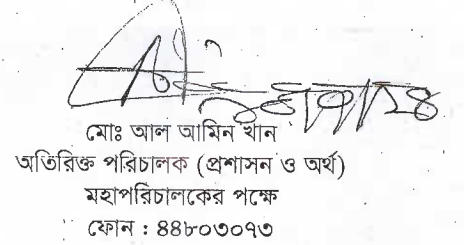 মোঃ আল আমিন খান
অতিরিক্ত পরিচালক (প্রশাসন ও অর্থ)
মহাপরিচালকের পক্ষে
ফোন : ৪৪৮০৩০৭৩